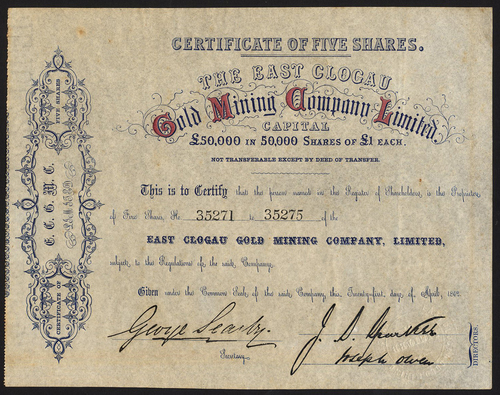 CERTIFICATE OF FIVE SHARES.
THE EAST CLOGAU
Gold Mining Company Limited
CAPITAL
£50,000 IN 50,000 SHARES OF £1 EACH.
NOT TRANSFERABLE EXCEPT BY DEED OF TRANSFER.
This is to Certify that the person named in the Register of Shareholders, is the Proprietor
of Five Shares, No 35271 to 35275 of the
EAST CLOGAU GOLD MINING COMPANY, LIMITED,
subject to the Regulations of the said Company.
Given under the Common Seal of the said Company, this Twenty-first day of April, 1862
George Searby.
Secretary.
J. S.
Joseph Owen
DIRECTORS.
CERTIFICATE OF
E. C. G. M. C.
FIVE SHARES